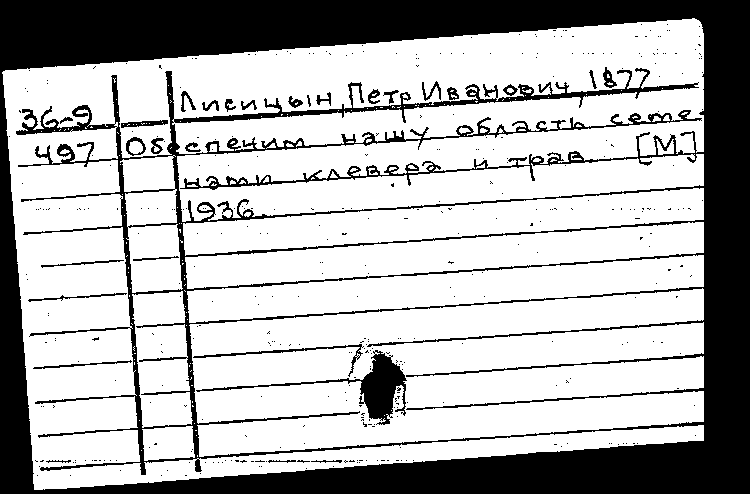 36-9 Лисицын, Петр Иванович, 1877
497 Обеспечим нашу область семе-
нами клевера и трав. [М.]
1936.